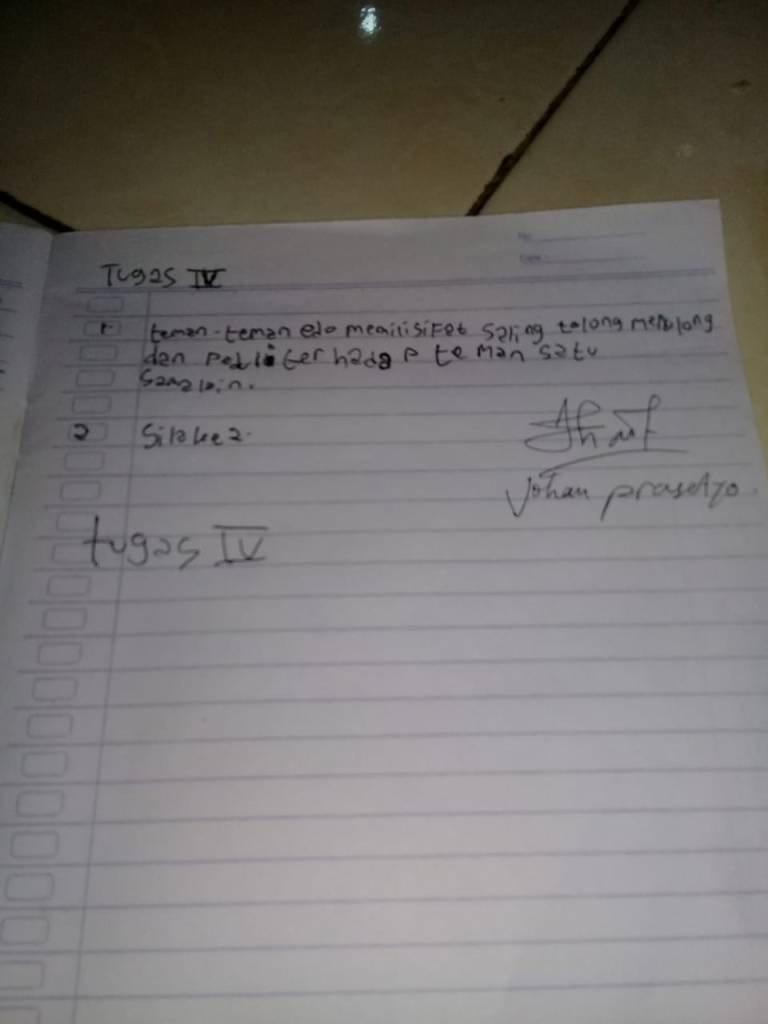 Tugas IV
1. teman-teman edo memilisifat saling tolong menolong
dan peduli terhadap teman satu
sama lain.
2 Sila ke 2.
Johan prasetyo.
tugas IV